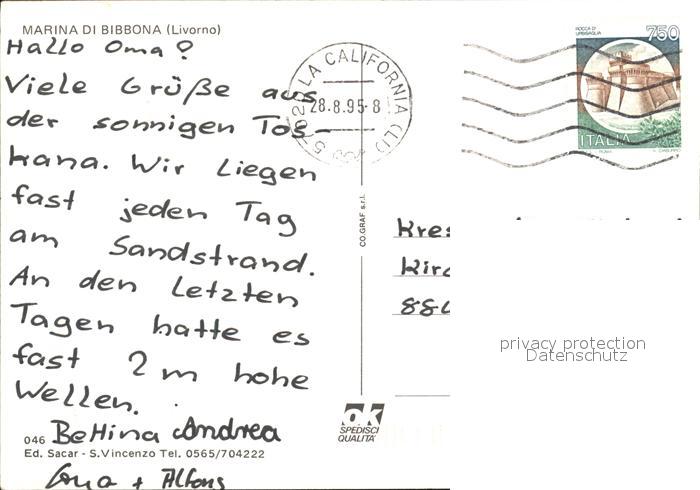 MARINA DI BIBBONA (Livorno)
Hallo Oma!
Viele Grüße aus
der sonnigen Tos-
kana. Wir liegen
fast jeden Tag
am Sandstrand.
An den letzten
Tagen hatte es
fast 2 m hohe
Wellen.
Bettina Andrea
+ Alfons
046
Ed. Sacar - S.Vincenzo Tel. 0565/704222
57020 LA CALIFORNIA (LI)
28.8.95-8
CO.GRAF s.r.l.
ROCCA DI
URBISAGLIA
750
ITALIA
Kres
Kirc
88
privacy protection
Datenschutz
ok
SPEDISCI
QUALITÀ